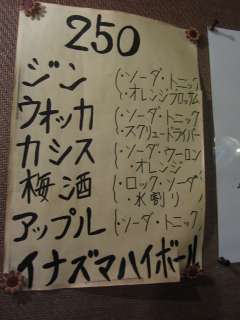 250
ジン (・ソーダ・トニック
・オレンジブロッサム)
ウオッカ (・ソーダ・トニック
・スクリュードライバー)
カシス (・ソーダ・ウーロン
・オレンジ)
梅酒 (・ロック・ソーダ
・水割り)
アップル (・ソーダ・トニック)
イナズマハイボール